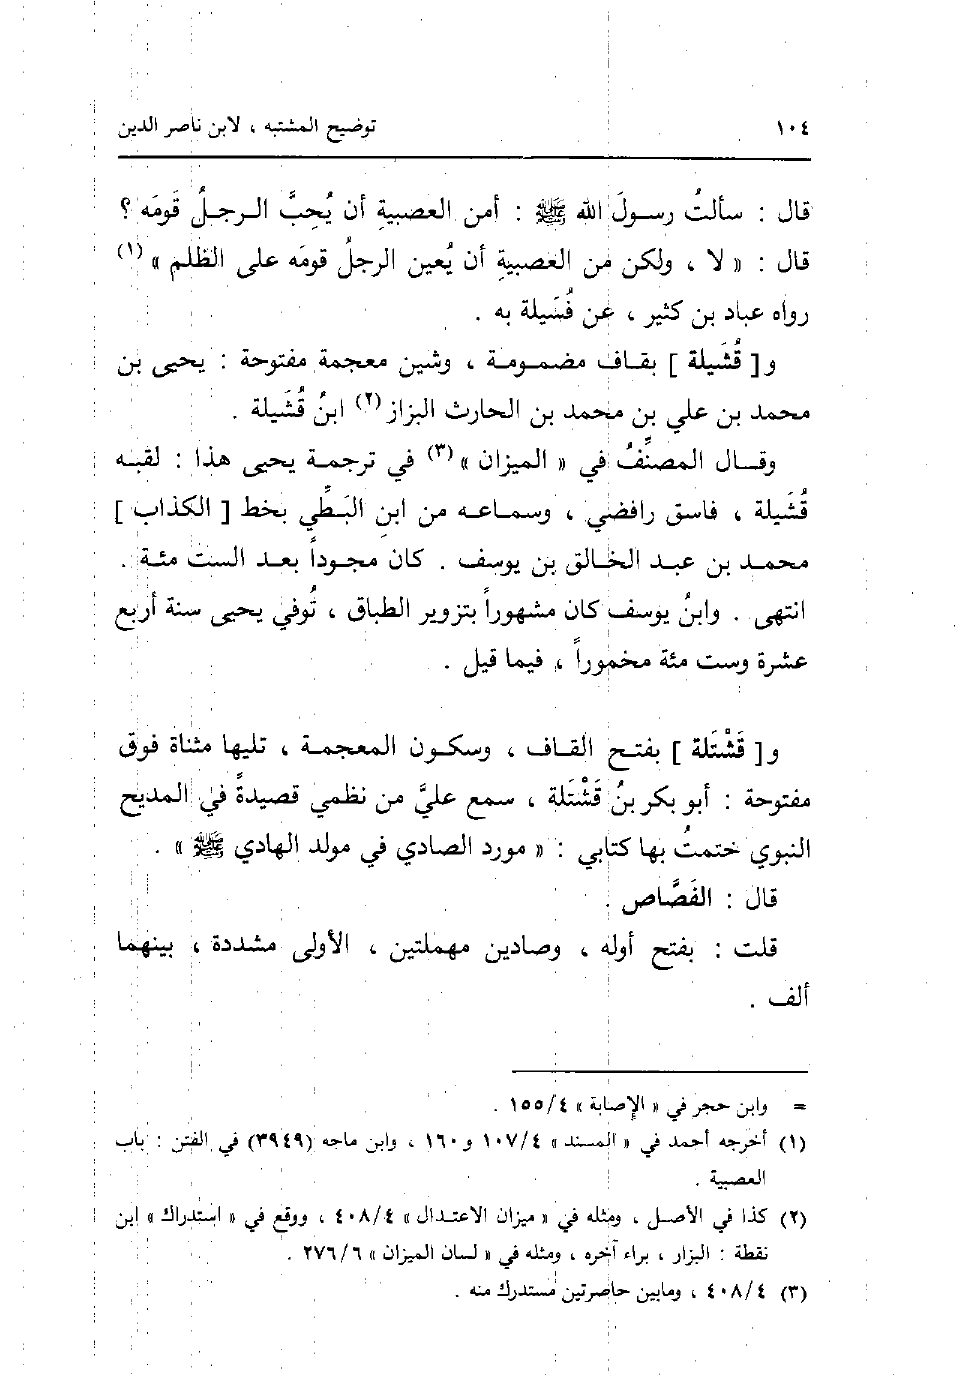 ١٠٤ توضيح المشتبه ، لابن ناصر الدين
قال : سألتُ رسولَ الله ﷺ : أمن العصبيةِ أن يُحِبَّ الرجلُ قومَه ؟
قال : « لا ، ولكن من العصبيةِ أن يُعين الرجلُ قومَه على الظلم » (١)
رواه عباد بن كثير ، عن فُسَيلة به .
و[ قُشَيلة ] بقاف مضمومة ، وشين معجمة مفتوحة : يحيى بن
محمد بن علي بن محمد بن الحارث البزاز (٢) ابنُ قُشَيلة .
وقال المصنِّفُ في « الميزان » (٣) في ترجمة يحيى هذا : لقبه
قُشَيلة ، فاسق رافضي ، وسماعه من ابن البَطِّي بخط [ الكذاب ]
محمد بن عبد الخالق بن يوسف . كان مجوداً بعد الست مئة .
انتهى . وابنُ يوسف كان مشهوراً بتزوير الطباق ، تُوفي يحيى سنة أربع
عشرة وست مئة مخموراً ، فيما قيل .
و[ قَشْتَلة ] بفتح القاف ، وسكون المعجمة ، تليها مثناة فوق
مفتوحة : أبو بكر بنُ قَشْتَلة ، سمع عليَّ من نظمي قصيدةً في المديح
النبوي ختمتُ بها كتابي : « مورد الصادي في مولد الهادي ﷺ » .
قال : القَصَّاص .
قلت : بفتح أوله ، وصادين مهملتين ، الأولى مشددة ، بينهما
ألف .
= وابن حجر في « الإصابة » ٤/١٥٥ .
(١) أخرجه أحمد في « المسند » ٤/١٠٧ و ١٦٠ ، وابن ماجه (٣٩٤٩) في الفتن : باب
العصبية .
(٢) كذا في الأصل ، ومثله في « ميزان الاعتدال » ٤/٤٠٨ ، ووقع في « استدراك » ابن
نقطة : البزار ، براء آخره ، ومثله في « لسان الميزان » ٦/٢٧٦ .
(٣) ٤/٤٠٨ ، ومابين حاصرتين مستدرك منه .